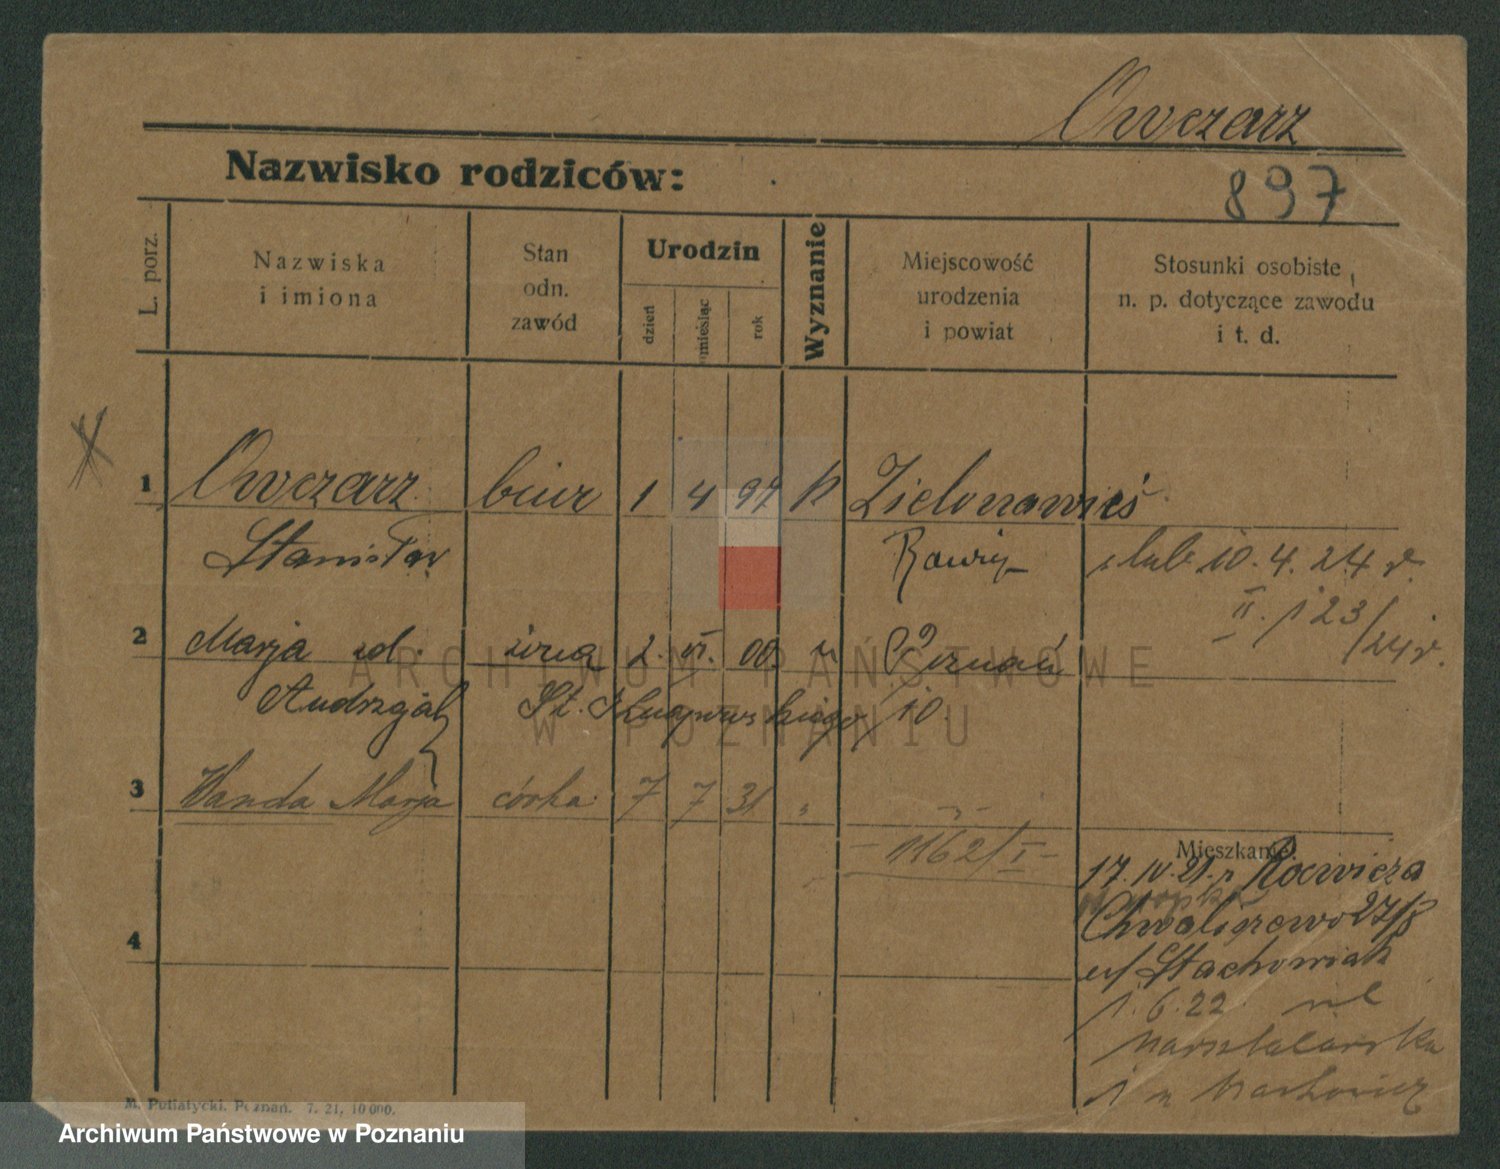 Owczarz
Nazwisko rodziców:
897
L. porz.
Nazwiska
i imiona
Stan
odn.
zawód
Urodzin
dzień
miesiąc
rok
Wyznanie
Miejscowość
urodzenia
i powiat
Stosunki osobiste
n. p. dotyczące zawodu
i t. d.
1 Owczarz biur 1 4 97 k Zielonawieś
Stanisław Rawicz ślub 10. 4. 24 r.
II. 123/24 r.
2 Marja ur. żona 2. VI. 00 Poznań
Andrzejak 10.
3 Wanda Marja córka 7 7 31 "
1162/I
Mieszkanie:
17. IV. 21. Rawicza
Chwaliszewo 27/8
Stachowiak
4
1. 6. 22 ul
1
M. Putiatycki, Poznań. 7. 21, 10 000.
ARCHIWUM PAŃSTWOWE
W POZNANIU
Archiwum Państwowe w Poznaniu